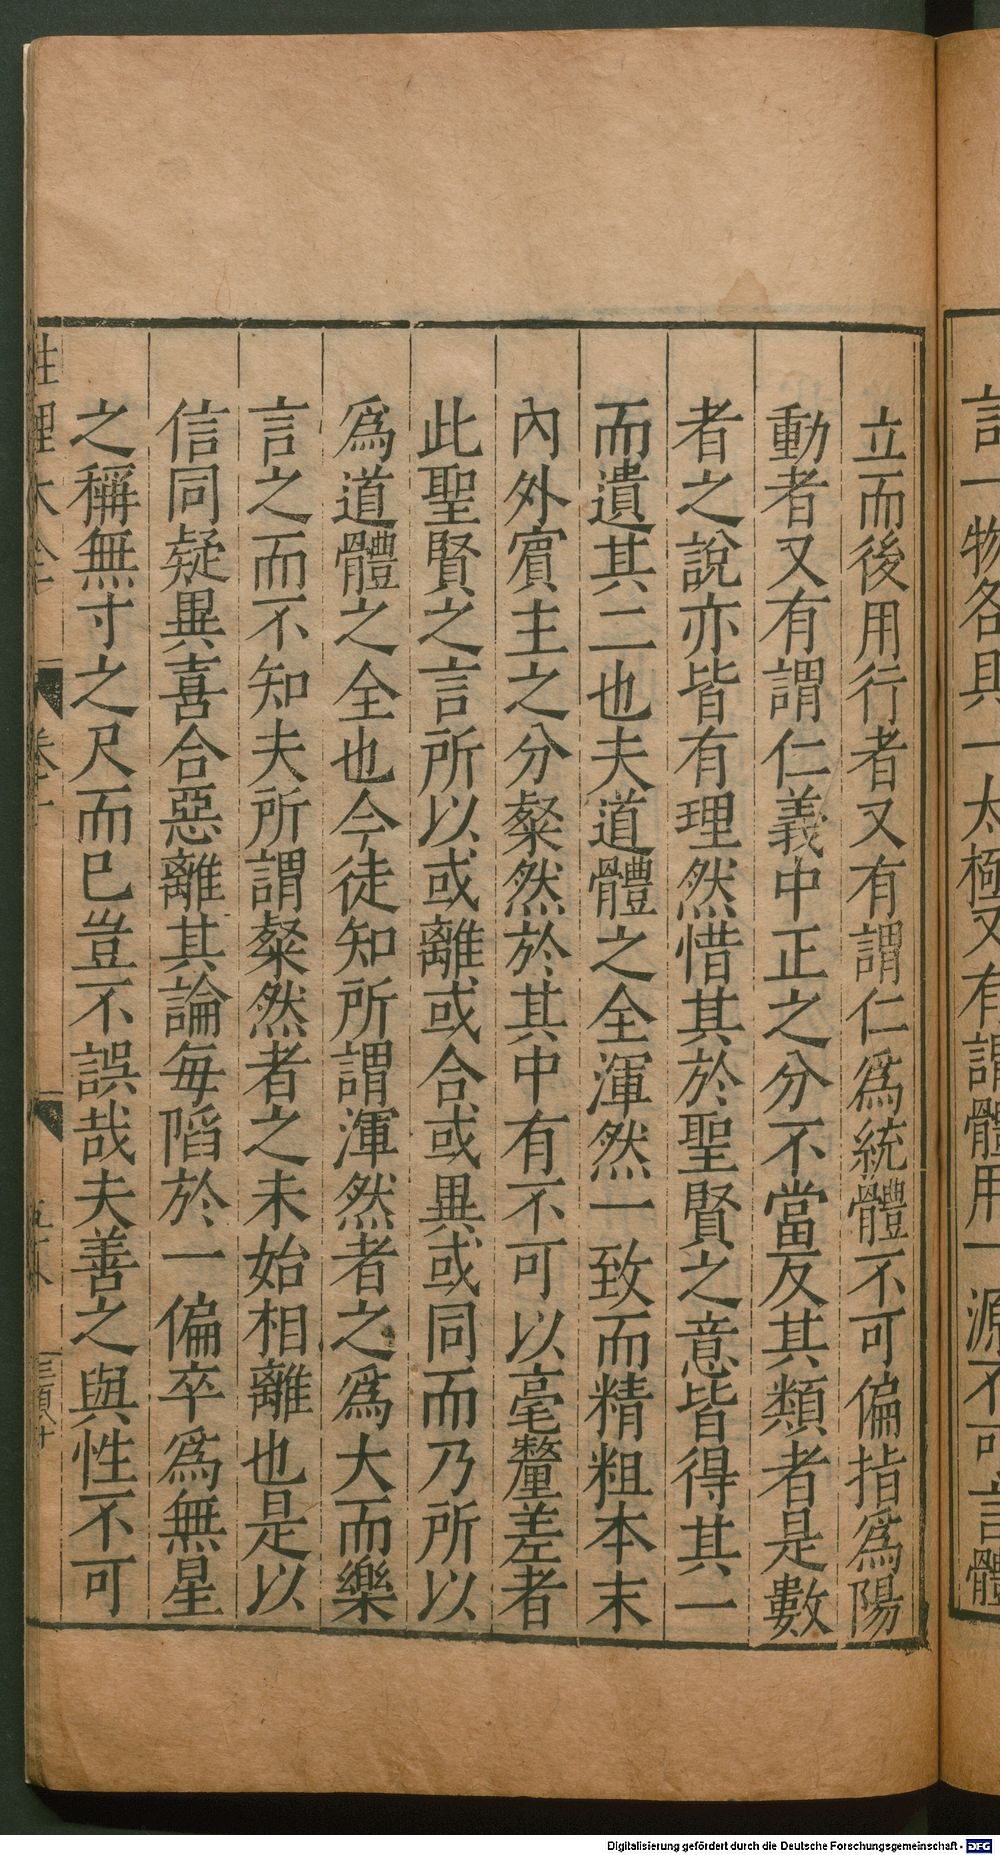 言一物各具一太極又有謂體用一源不可言體
立而後用行者又有謂仁爲統體不可偏指爲陽
動者又有謂仁義中正之分不當反其類者是數
者之說亦皆有理然惜其於聖賢之意皆得其一
而遺其二也夫道體之全渾然一致而精粗本末
內外賔主之分粲然於其中有不可以毫釐差者
此聖賢之言所以或離或合或異或同而乃所以
爲道體之全也今徒知所謂渾然者之爲大而樂
言之而不知夫所謂粲然者之未始相離也是以
信同疑異喜合惡離其論每陷於一偏卒爲無星
之稱無寸之尺而已豈不誤哉夫善之與性不可
性理大全 卷一
Digitalisierung gefördert durch die Deutsche Forschungsgemeinschaft - DFG